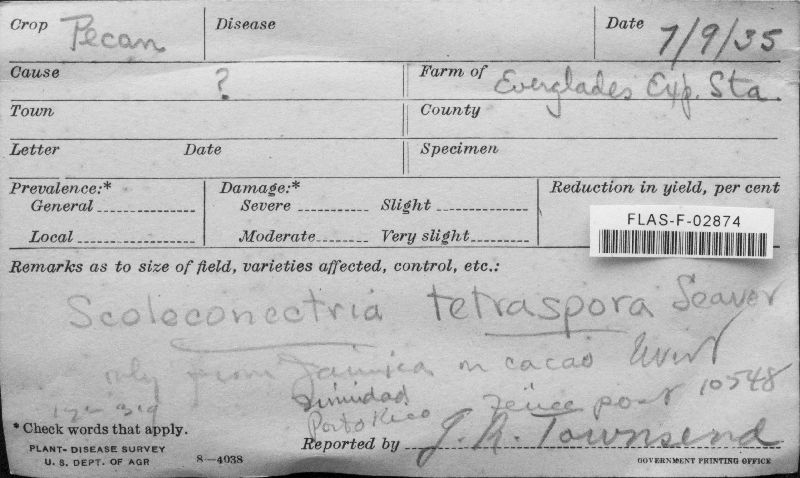 Crop Pecan Disease Date 7/9/35
Cause ? Farm of Everglades Exp. Sta.
Town County
Letter Date Specimen
Prevalence:* Damage:* Reduction in yield, per cent
General Severe Slight
Local Moderate Very slight
FLAS-F-02874
Remarks as to size of field, varieties affected, control, etc.:
Scoleconectria tetraspora Seaver
only from Jamica on cacao
Trinidad
Porto Rico fence post 10548
* Check words that apply.
Reported by J. R. Townsend
PLANT-DISEASE SURVEY
U. S. DEPT. OF AGR 8—4038 GOVERNMENT PRINTING OFFICE